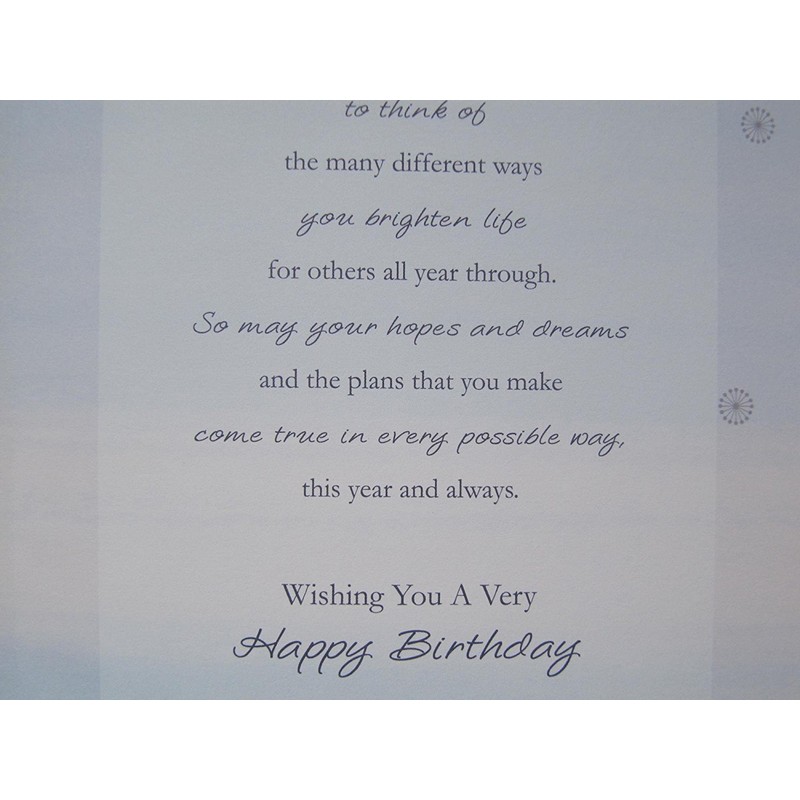 to think of
the many different ways
you brighten life
for others all year through.
So may your hopes and dreams
and the plans that you make
come true in every possible way,
this year and always.
Wishing You A Very
Happy Birthday